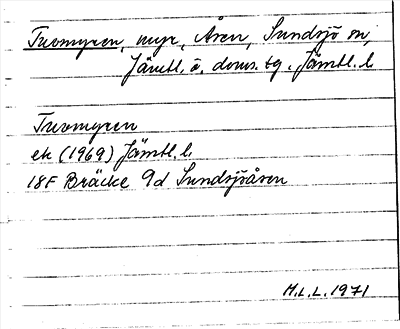 Tvomyren, myr, Åsen, Sundsjö sn,
Jämtl. ö. doms. tg. Jämtl. l.
Tvomyren
ek (1969) Jämtl. l.
18F Bräcke 9d Sundsjöåsen
M.L.L. 1971